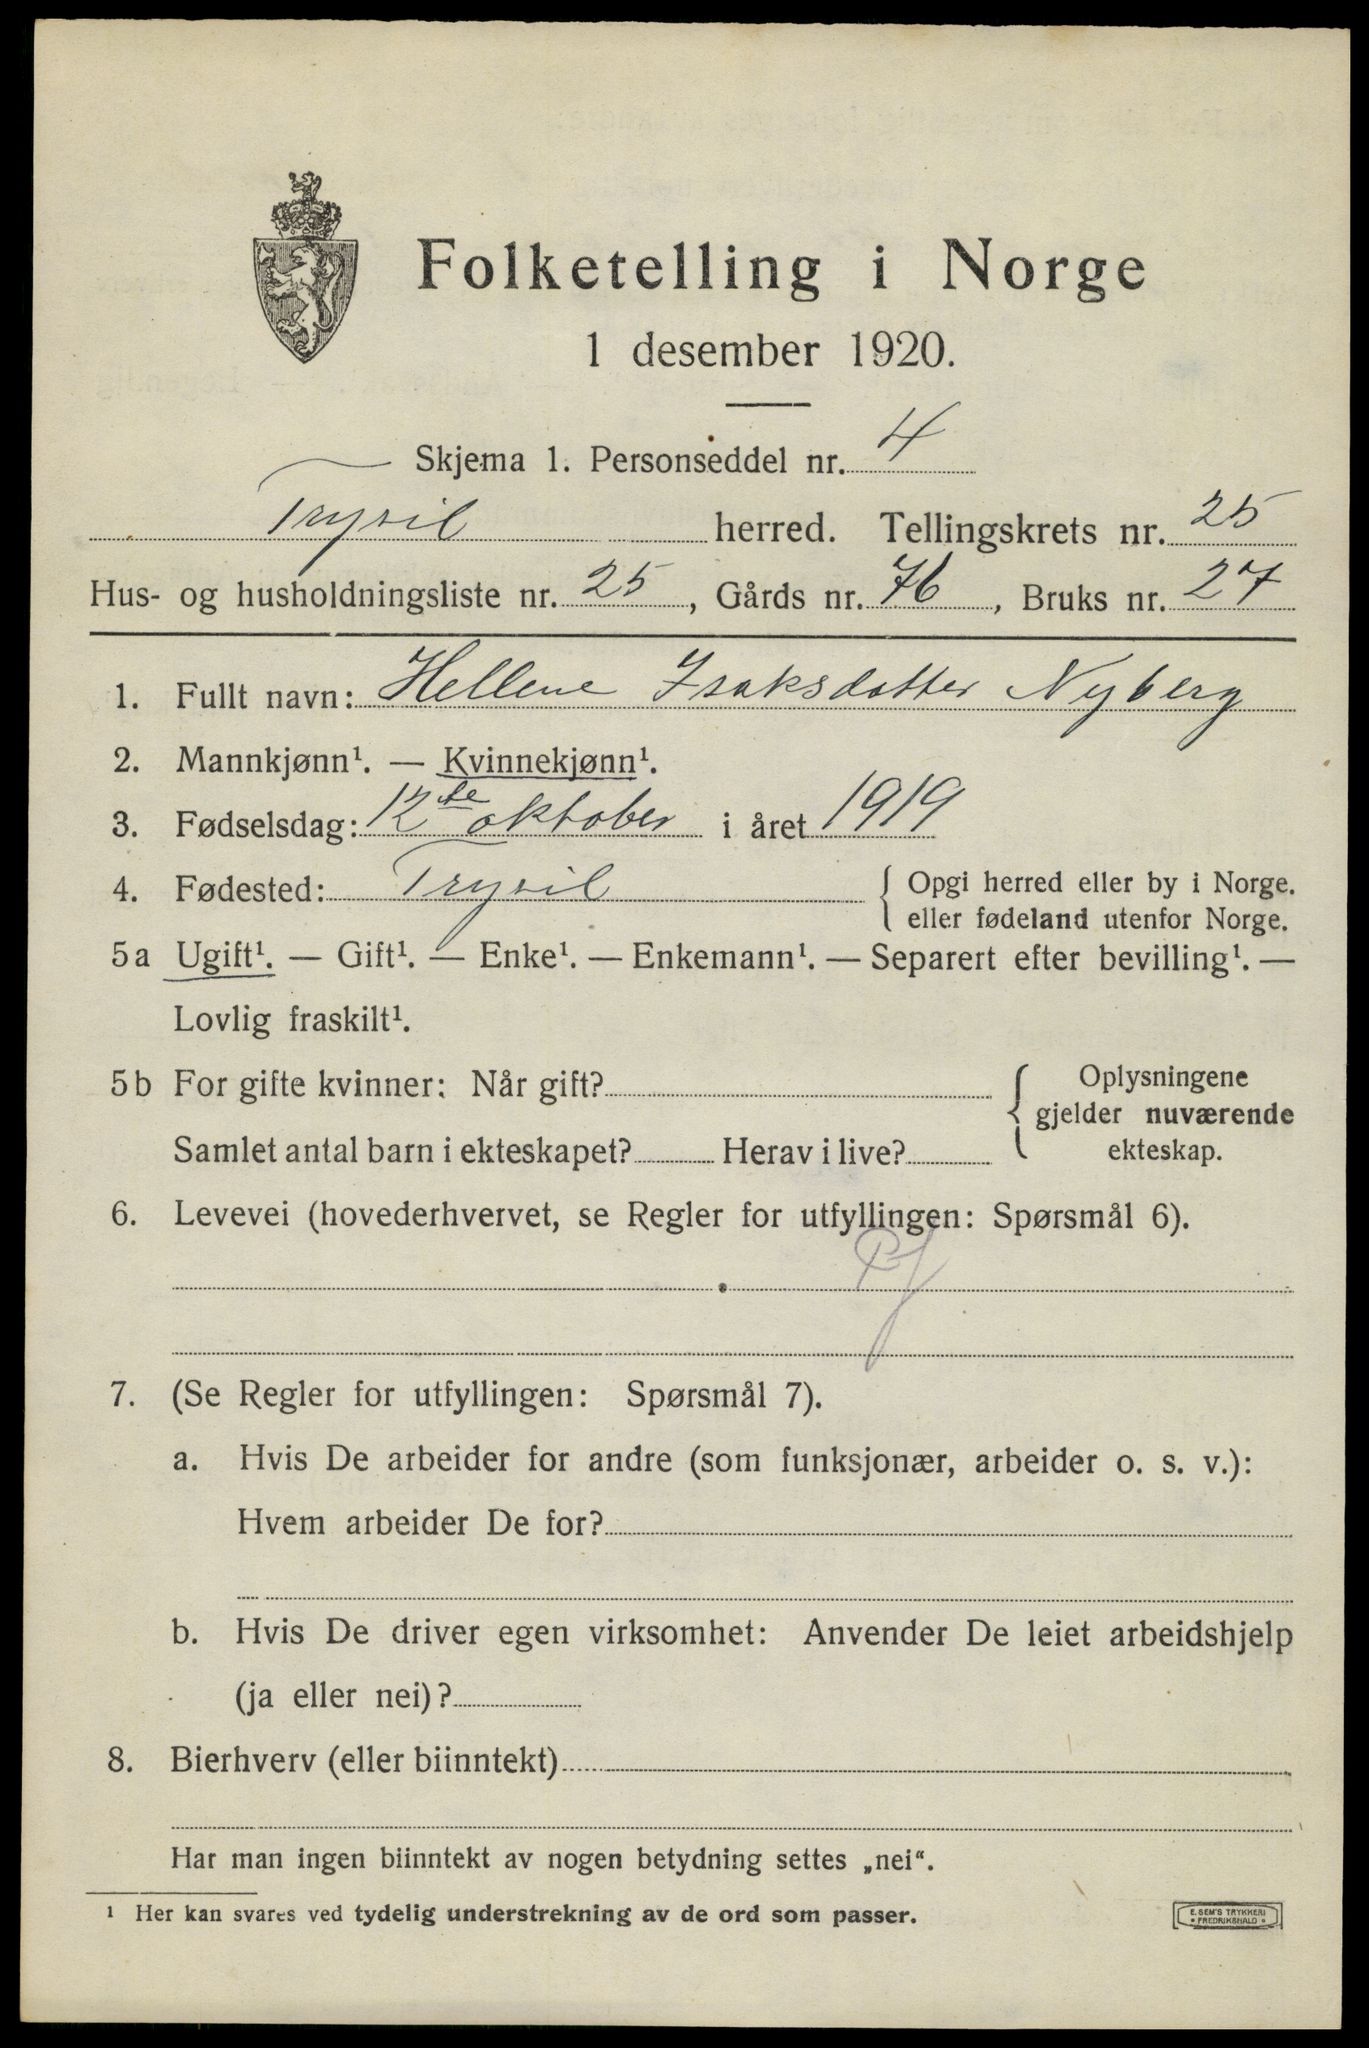 Folketelling i Norge
1 desember 1920.
Skjema 1. Personseddel nr. 4
Trysil herred. Tellingskrets nr. 25
Hus- og husholdningsliste nr. 25, Gårds nr. 76, Bruks nr. 27
1. Fullt navn: Hellene Isaksdatter Nyberg
2. Mannkjønn¹. — Kvinnekjønn¹.
3. Fødselsdag: 12te oktober i året 1919
4. Fødested: Trysil { Opgi herred eller by i Norge.
eller fødeland utenfor Norge.
5a Ugift¹. — Gift¹. — Enke¹. — Enkemann¹. — Separert efter bevilling¹. —
Lovlig fraskilt¹.
5b For gifte kvinner: Når gift? { Oplysningene
gjelder nuværende
Samlet antal barn i ekteskapet? Herav i live? ekteskap.
6. Levevei (hovederhvervet, se Regler for utfyllingen: Spørsmål 6).
7. (Se Regler for utfyllingen: Spørsmål 7).
a. Hvis De arbeider for andre (som funksjonær, arbeider o. s. v.):
Hvem arbeider De for?
b. Hvis De driver egen virksomhet: Anvender De leiet arbeidshjelp
(ja eller nei)?
8. Bierhverv (eller biinntekt)
Har man ingen biinntekt av nogen betydning settes „nei“.
¹ Her kan svares ved tydelig understrekning av de ord som passer.
E. SEM'S TRYKKERI
• FREDRIKSHALD •